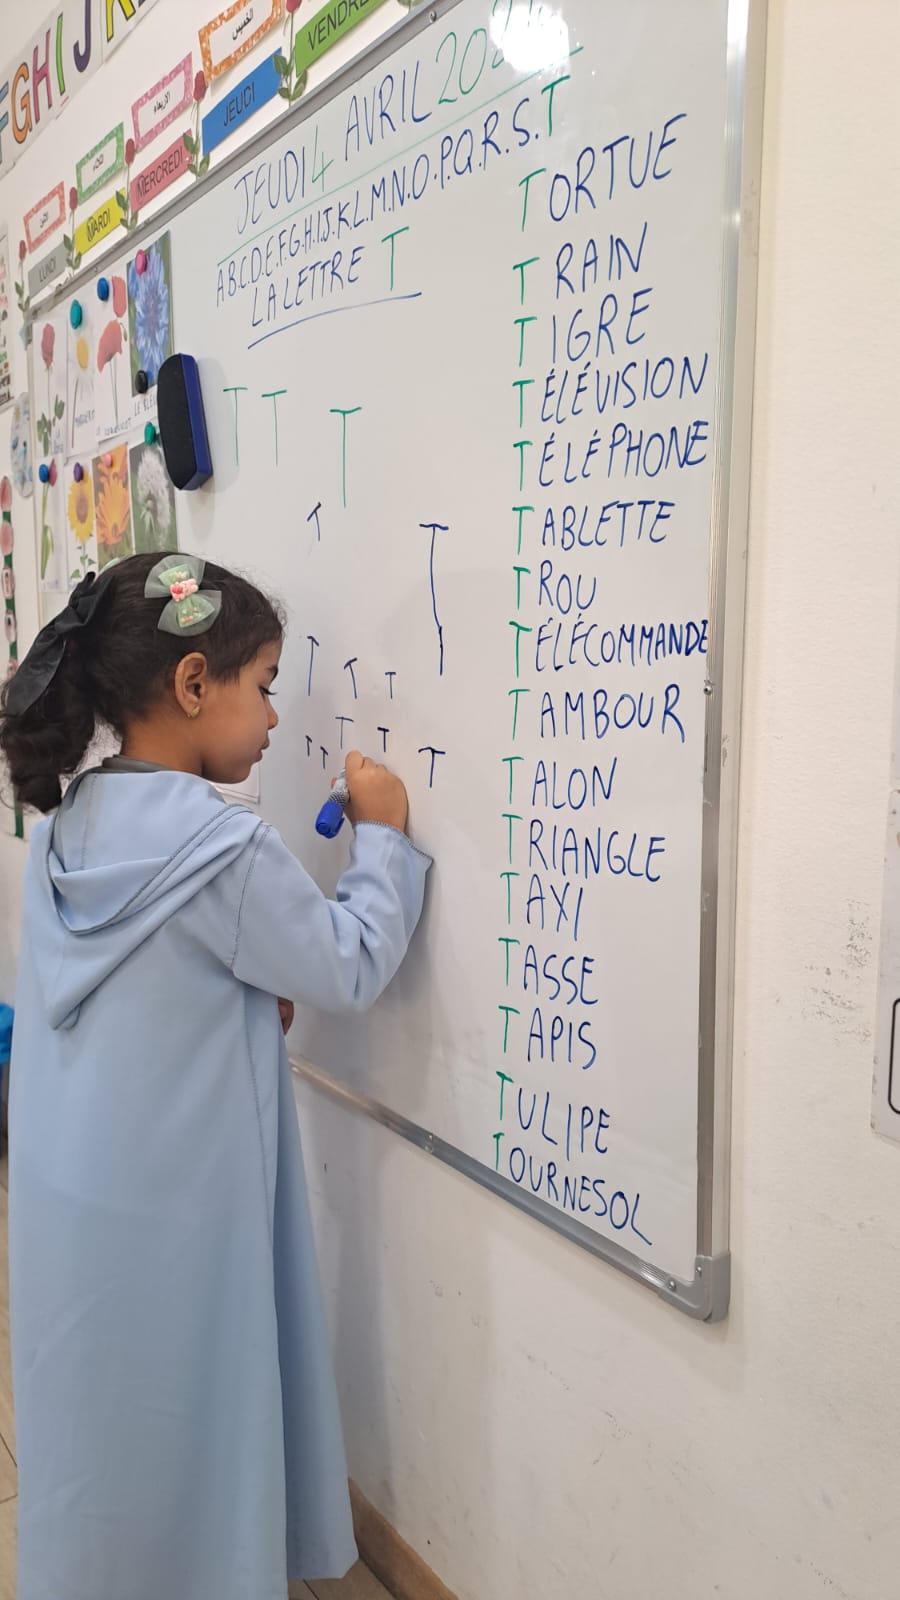 FGHIJK
الخميس
VENDRE
الأربعاء
JEUDI
MERCREDI
MARDI
LUNDI
JEUDI 4 AVRIL 202
A.B.C.D.E.F.G.H.I.J.K.L.M.N.O.P.Q.R.S.T
LA LETTRE T
T T T
T
T
T T T
T T T T T
TORTUE
TRAIN
TIGRE
TÉLÉVISION
TÉLÉPHONE
TABLETTE
TROU
TÉLÉCOMMANDE
TAMBOUR
TALON
TRIANGLE
TAXI
TASSE
TAPIS
TULIPE
TOURNESOL